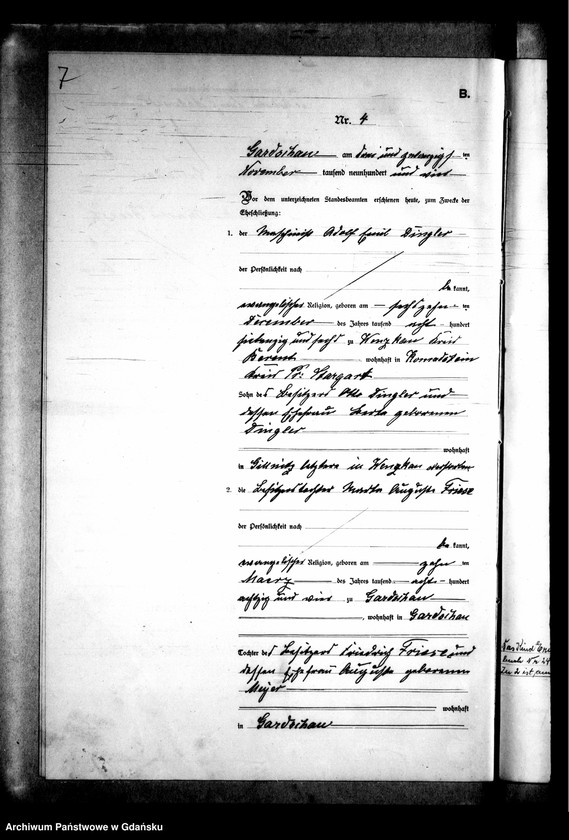 7
B.
Nr. 4
Gardschau am drei und zwanzigsten
November tausend neunhundert und vier
Vor dem unterzeichneten Standesbeamten erschienen heute, zum Zwecke der
Eheschließung:
1. der Maschinist Adolf Emil Dingler
der Persönlichkeit nach
be kannt,
evangelischer Religion, geboren am sechzehn ten
December des Jahres tausend acht hundert
siebenzig und sechs zu Kreis
Berent wohnhaft in
Kreis Pr: Stargart
Sohn des Besitzers Otto Dingler und
dessen Ehefrau Berta geborenen
Dingler
wohnhaft
in letztere in verstorben
2. die Besitzerstochter Marta Auguste Friese
der Persönlichkeit nach
be kannt,
evangelischer Religion, geboren am zehn ten
Maerz des Jahres tausend acht hundert
achtzig und vier zu Gardschau
, wohnhaft in Gardschau
Tochter des Besitzers Friedrich Friese und
dessen Ehefrau Auguste geborenen
Meyer
wohnhaft
in Gardschau
Das Kind
Nr 24
Archiwum Państwowe w Gdańsku